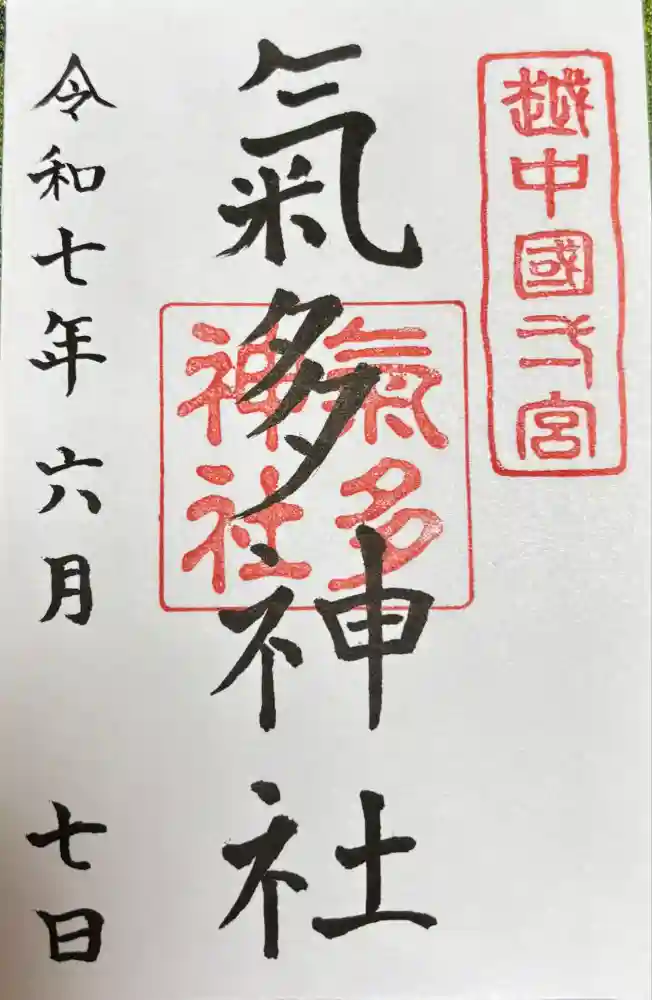 越中國一宮
氣多神社
氣多
神社
令和七年六月 七日